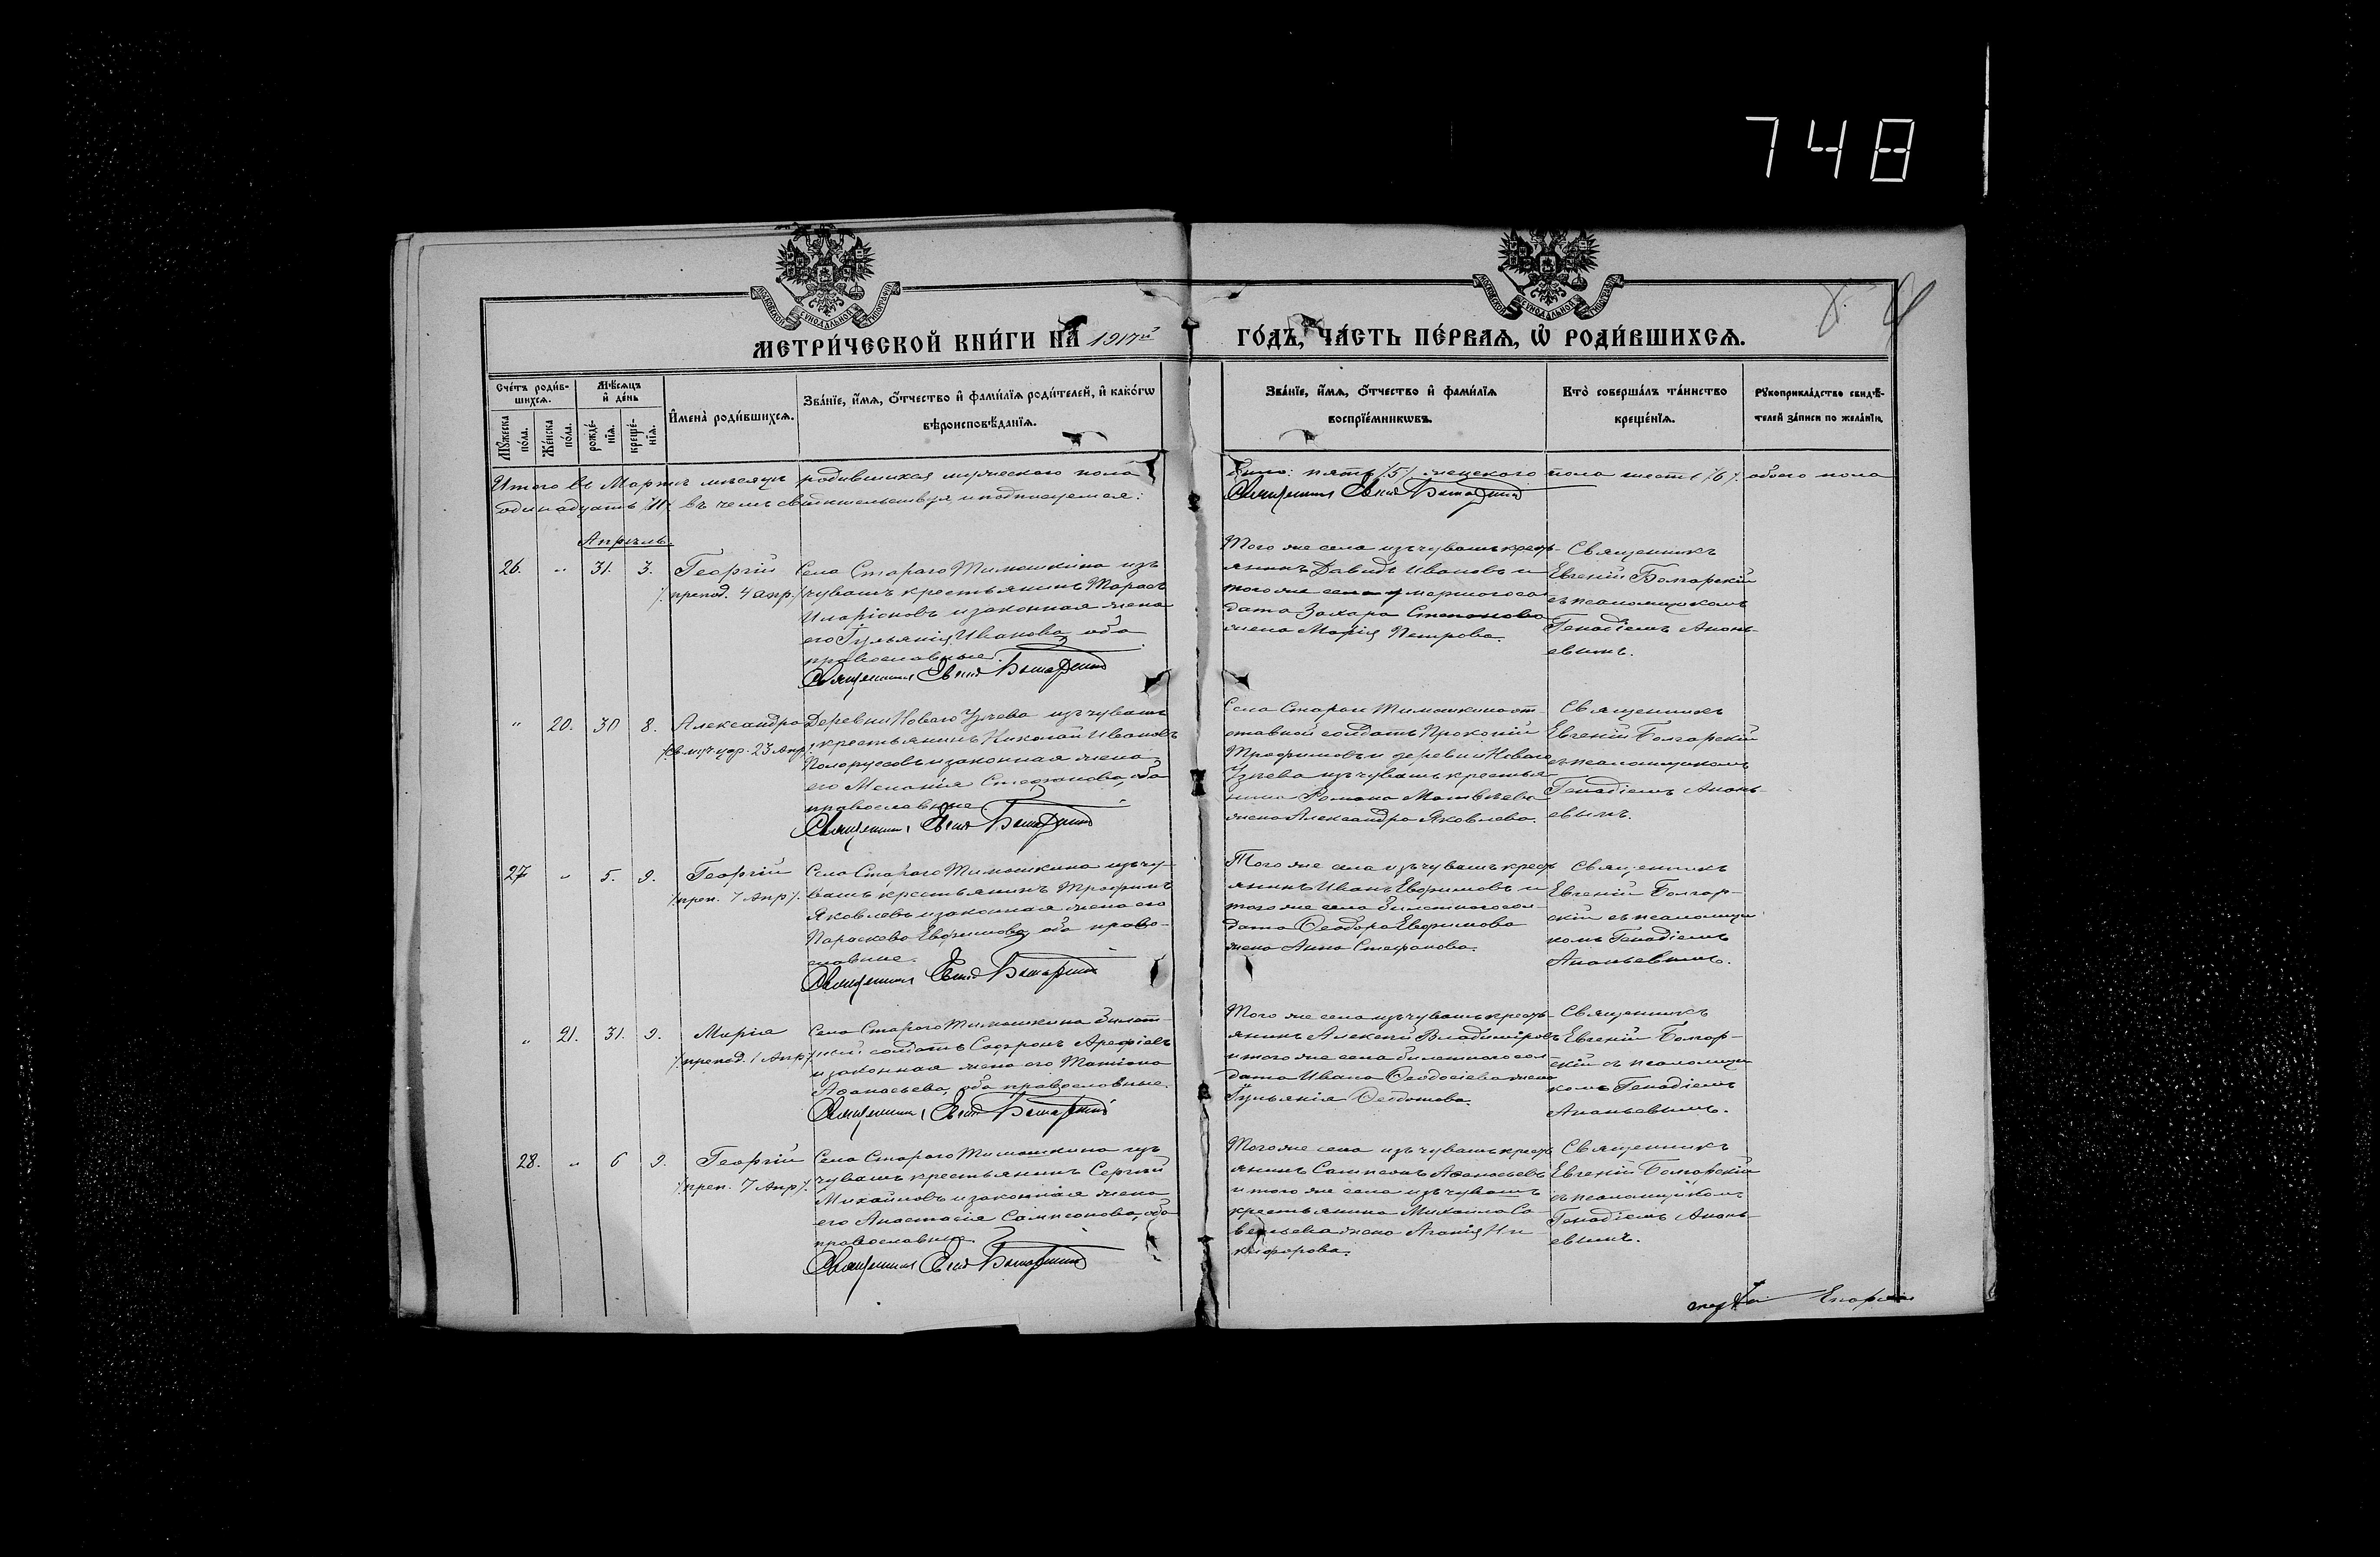 748
МОСКОВСКОЙ СѴНОДАЛЬНОЙ ТИПОГРАФІИ
МОСКОВСКОЙ СѴНОДАЛЬНОЙ ТИПОГРАФІИ
МЕТРИ́ЧЕСКОЙ КНИ́ГИ НА 1917й ГО́ДЪ, ЧА́СТЬ ПЕ́РВАѦ, Ѡ҆ РОДИ́ВШИХСѦ.
Сче́тъ роди́в-
шихсѧ.
Мѣ́сѧцъ
и҆ де́нь
Мꙋ́жеска
по́ла.
Же́нска
по́ла.
рожде́-
нїѧ.
креще́-
нїѧ.
И҆мена̀ роди́вшихсѧ.
Зва́нїе, и҆́мѧ, о҆́тчество и҆ фами́лїѧ роди́телей, и҆ како́гѡ
вѣроисповѣ́данїѧ.
Зва́нїе, и҆́мѧ, о҆́тчество и҆ фами́лїѧ
воспрїе́мникѡвъ.
Кто̀ соверша́лъ та́инство
креще́нїѧ.
Рꙋкоприкла́дство свидѣ́-
телей за́писи по жела́нїю.
Итого въ Мартѣ мѣсяцѣ родившихся мужескаго пола
было: пять /5/ женскаго пола шесть /6/. обоего пола
одинадцать /11/ въ чемъ свидѣтельствуя и подписуемся:
Священникъ Евгій Болгарскій
Апрѣль.
26. " 31. 3.
Георгій
/препод. 4 апр./
Села Стараго Тимошкина изъ
чувашъ крестьянинъ Тарасъ
Иларіоновъ и законная жена
его Іульянія Иванова, оба
православные.
Священникъ Евгій Болгарскій
Того же села изъ чувашъ кресть-
янинъ Давидъ Ивановъ и
того же села умершаго сол
дата Захара Степанова
жена Марія Петрова.
Священникъ
Евгеній Болгарскій
съ псаломщикомъ
Генадіемъ Анань-
евымъ.
" 20. 30 8.
Александра
/св. муч. цар. 23 Апр/
Деревни Новаго Узѣева изъ чувашъ
крестьянинъ Николай Ивановъ
Полоруссовъ и законная жена
его Меланія Стефанова, оба
православные.
Священникъ Евгій Болгарскій
Села Стараго Тимошкина от-
ставной солдатъ Прокопій
Трофимовъ и деревни Новаго
Узѣева изъ чувашъ крестья
нина Романа Матвѣева
жена Александра Яковлева.
Священникъ
Евгеній Болгарскій
съ псаломщикомъ
Генадіемъ Анань-
евымъ.
27 " 5. 9.
Георгій
/преп. 7 Апр/.
Села Стараго Тимошкина изъ чу-
вашъ крестьянинъ Трофимъ
Яковлевъ и законная жена его
Параскева Евфимова, оба право-
славные.
Священникъ Евгій Болгарскій
Того же села изъ чувашъ кресть
янинъ Иванъ Евфимовъ и
того же села билетнаго сол-
дата Ѳеодора Евфимова
жена Анна Стефанова.
Священникъ
Евгеній Болгар-
скій съ псаломщи
комъ Генадіемъ
Ананьевымъ.
" 21. 31. 9.
Марія
/препод. 1 Апр/
Села Стараго Тимошкина билет-
ный солдатъ Софронъ Арефіевъ
и законная жена его Татіана
Аѳанасьева, оба православные.
Священникъ Евгій Болгарскій
Того же села изъ чувашъ кресть-
янинъ Алексѣй Владиміровъ
и того же села билетнаго сол-
дата Ивана Ѳеодосіева жена
Іульянія Ѳедотова.
Священникъ
Евгеній Болгар-
скій съ псаломщи
комъ Генадіемъ
Ананьевымъ.
28. " 6 9.
Георгій
/преп. 7 Апр/.
Села Стараго Тимошкина изъ
чувашъ крестьянинъ Сергѣй
Михайловъ и законная жена
его Анастасія Сампсонова, оба
православные.
Священникъ Евгій Болгарскій
Того же села изъ чувашъ кресть
янинъ Сампсонъ Аѳанасьевъ
и того же села изъ чувашъ
крестьянина Михаила Са
вельева жена Агаѳія Ни
кифорова.
Священникъ
Евгеній Болгарскій
съ псаломщикомъ
Генадіемъ Анань-
евымъ.